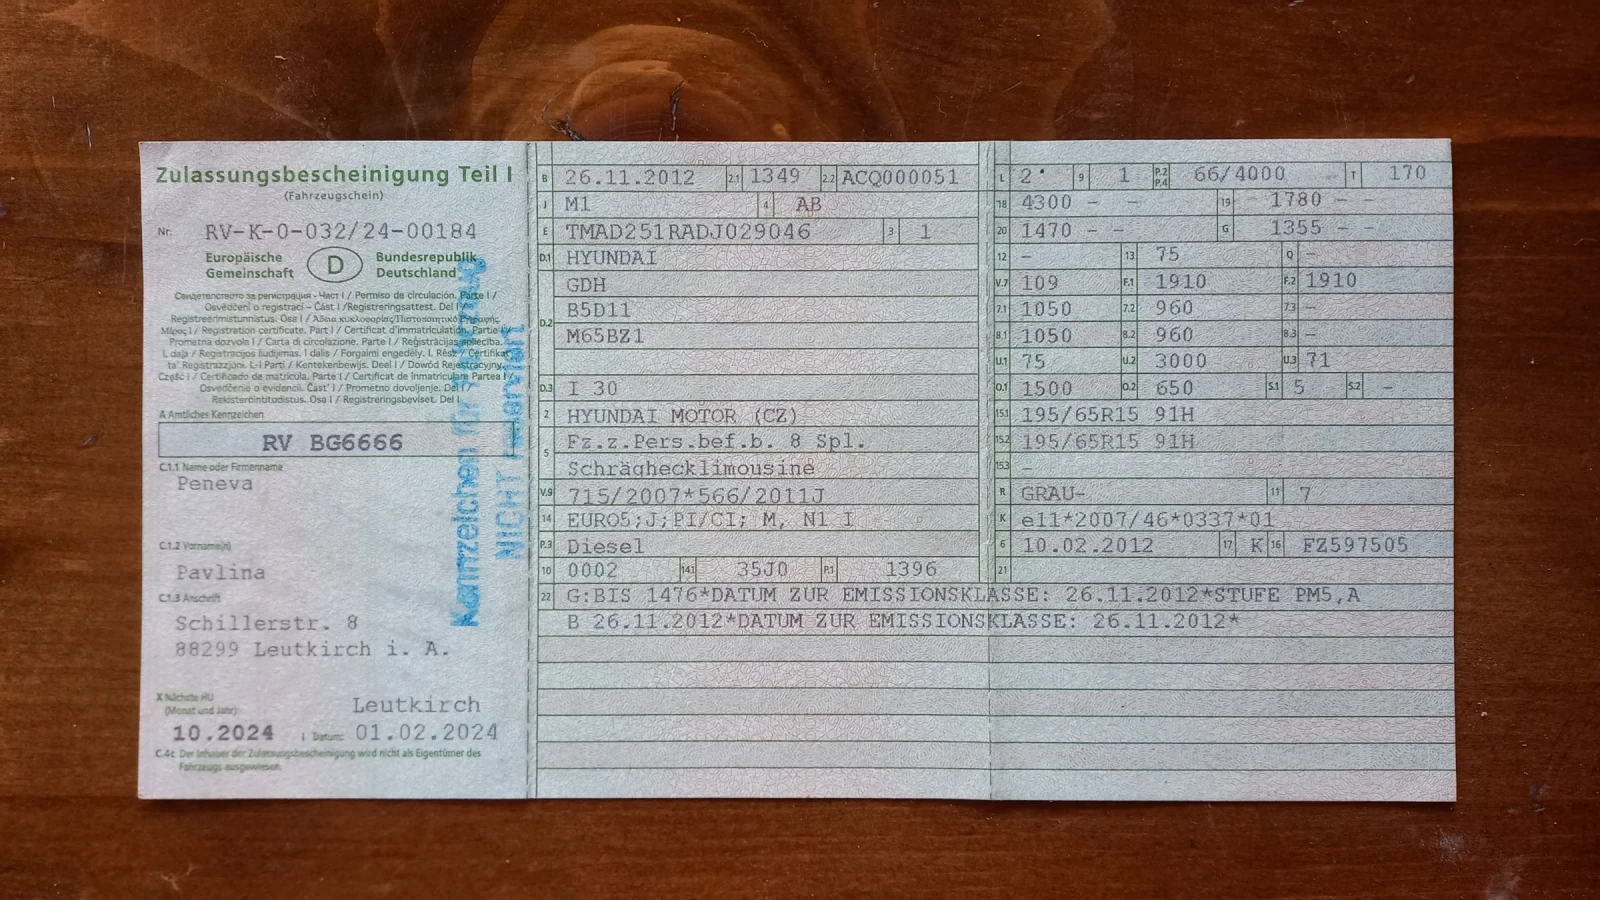 Zulassungsbescheinigung Teil I
(Fahrzeugschein)
Nr. RV-K-0-032/24-00184
Europäische Gemeinschaft D Bundesrepublik Deutschland
Свидетелството за регистрация - Част I / Permiso de circulación. Parte I /
Osvědčení o registraci – Část I / Registreringsattest. Del I /
Registreerimistunnistus. Osa I / Άδεια κυκλοφορίας/Πιστοποιητικό Εγγραφής.
Μέρος I / Registration certificate. Part I / Certificat d'immatriculation. Partie
Prometna dozvola I / Carta di circolazione. Parte I / Reģistrācijas apliecība.
I. daļa / Registracijos liudijimas. I dalis / Forgalmi engedély. I. Rész / Ċertifikat
ta' Reġistrazzjoni. L-I Parti / Kentekenbewijs. Deel I / Dowód Rejestracyjny.
Część I / Certificado de matrícula. Parte I / Certificat de înmatriculare Partea I /
Osvedčenie o evidencii. Časť I / Prometno dovoljenje. Del I /
Rekisteröintitodistus. Osa I / Registreringsbeviset. Del I
A Amtliches Kennzeichen
RV BG6666
C.1.1 Name oder Firmenname
Peneva
C.1.2 Vorname(n)
Pavlina
C.1.3 Anschrift
Schillerstr. 8
88299 Leutkirch i. A.
X Nächste HU
(Monat und Jahr)
Leutkirch
10.2024 I Datum: 01.02.2024
C.4c Der Inhaber der Zulassungsbescheinigung wird nicht als Eigentümer des
Fahrzeugs ausgewiesen.
Kennzeichen für
NICHT reserviert
B 26.11.2012 2.1 1349 2.2 ACQ000051
J M1 4 AB
E TMAD251RADJ029046 3 1
D.1 HYUNDAI
GDH
D.2 B5D11
M65BZ1
D.3 I 30
2 HYUNDAI MOTOR (CZ)
5 Fz.z.Pers.bef.b. 8 Spl.
Schräghecklimousine
V.9 715/2007*566/2011J
14 EURO5;J;PI/CI; M, N1 I
P.3 Diesel
10 0002 14.1 35J0 P.1 1396
L 2 9 1 P.2 P.4 66/4000 – T 170
18 4300 – – 19 1780 – –
20 1470 – – G 1355 – –
12 – 13 75 Q –
V.7 109 F.1 1910 F.2 1910
7.1 1050 7.2 960 7.3 –
8.1 1050 8.2 960 8.3 –
U.1 75 U.2 3000 U.3 71
O.1 1500 O.2 650 S.1 5 S.2 –
15.1 195/65R15 91H
15.2 195/65R15 91H
15.3 –
R GRAU– 11 7
K e11*2007/46*0337*01
6 10.02.2012 17 K 16 FZ597505
21
22 G:BIS 1476*DATUM ZUR EMISSIONSKLASSE: 26.11.2012*STUFE PM5,A
B 26.11.2012*DATUM ZUR EMISSIONSKLASSE: 26.11.2012*